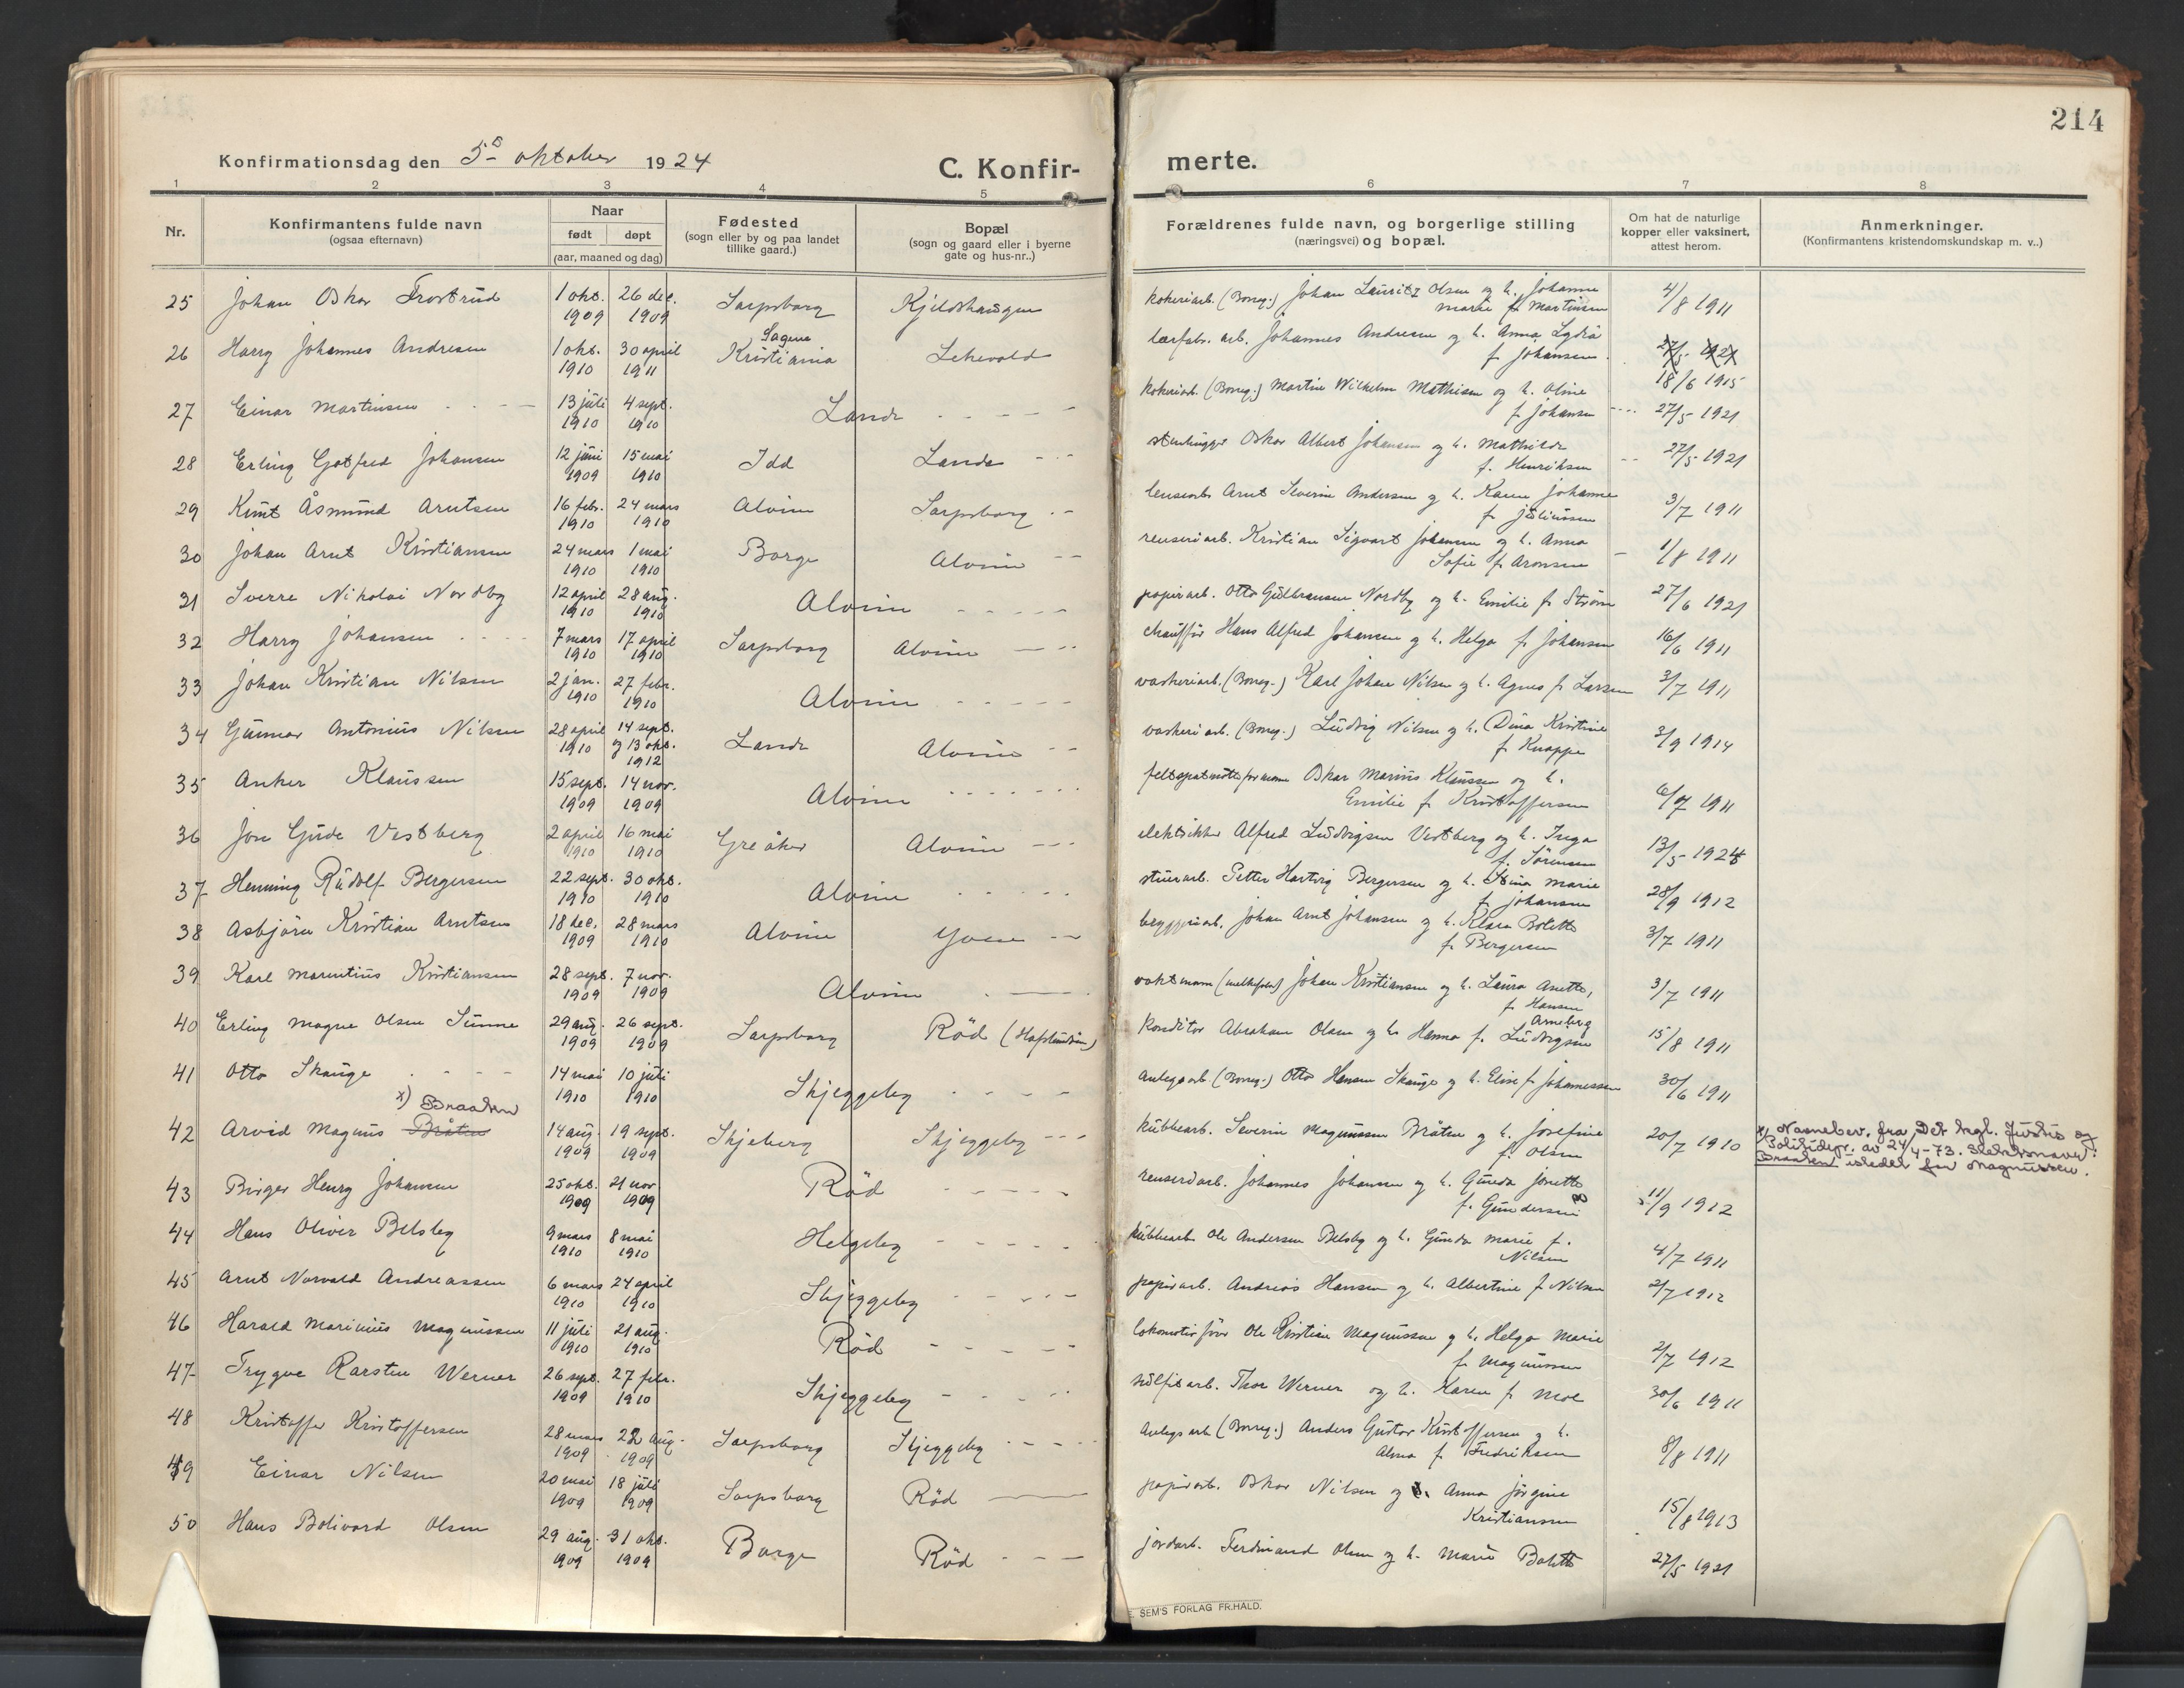 214
Konfirmationsdag den 5 oktober 1924
C. Konfir-
merte.
1 2 3 4 5 6 7 8
Nr.
Konfirmantens fulde navn
(ogsaa efternavn)
Naar
født døpt
(aar, maaned og dag)
Fødested
(sogn eller by og paa landet
tillike gaard.)
Bopæl
(sogn og gaard eller i byerne
gate og hus-nr..)
Forældrenes fulde navn, og borgerlige stilling
(næringsvei) og bopæl.
Om hat de naturlige
kopper eller vaksinert,
attest herom.
Anmerkninger.
(Konfirmantens kristendomskundskap m. v..)
25 Johan Oskar Trostrud 1 okt. 26 dec. Sarpsborg Kjeldshaugen kokeriarb. (Borreg.) Johan Lauritz Olsen og h. Johanne 4/8 1911
1909 1909 Marie f. Martinsen
26 Harry Johannes Andresen 1 okt. 30 april Sagene Kristiania Lekevold lærfabr. arb. Johannes Andresen og h. Anna Lydia
1910 1911 f. Johansen 27/5 1921
18/6 1915
27 Einar Martinsen 13 juli 4 sept. Lande kokeriarb. (Borreg.) Martin Wilhelm Mathisen og h. Oline
1910 1910 f. Johansen 27/5 1921
28 Erling Gotfred Johansen 12 juni 15 mai Idd Lande stenhugger Oskar Albert Johansen og h. Mathilde
1909 1910 f. Henriksen 27/5 1921
29 Knut Åsmund Arntsen 16 febr. 24 mars Alvim Sarpsborg lensearb. Arnt Severin Andersen og h. Karen Johanne
1910 1910 f. Juliussen 3/7 1911
30 Johan Arnt Kristiansen 24 mars 1 mai Borge Alvim renseriarb. Kristian Sigvart Johansen og h. Anna
1910 1910 Sofie f. Aronsen 1/8 1911
31 Sverre Nikolai Nordby 12 april 28 aug. Alvim papirarb. Otto Gulbransen Nordby og h. Emilie f. Strøm 27/6 1921
1910 1910
32 Harry Johansen 7 mars 17 april Sarpsborg Alvim chauffør Hans Alfred Johansen og h. Helga f. Johansen 16/6 1911
1910 1910
33 Johan Kristian Nilsen 2 jan. 27 febr. Alvim vaskeriarb. (Borreg.) Karl Johan Nilsen og h. Agnes f. Larsen 3/7 1911
1910 1910
34 Gunnar Antonius Nilsen 28 april 14 sept. Lande Alvim vaskeriarb. (Borreg.) Ludvig Nilsen og h. Dina Kristine
1910 og 13 okt. f. Knappe 3/9 1914
1912
35 Anker Klaussen 15 sept. 14 nov. Alvim Oskar Marius Klaussen og h.
1909 1909 Emilie f. Kristoffersen 6/7 1911
36 Jon Gude Vestberg 2 april 16 mai Greåker Alvim elektriker Alfred Ludvigsen Vestberg og h. Inga
1910 1910 f. Sörensen 13/5 1924
37 Henning Rudolf Bergersen 22 sept. 30 okt. Alvim stuerarb. Petter Hartvig Bergersen og h. Stina Marie
1910 1910 f. Johansen 28/9 1912
38 Asbjörn Kristian Arntsen 18 dec. 28 mars Alvim Yven byggeriarb. Johan Arnt Johansen og h. Klara Bolette
1909 1910 f. Bergersen 3/7 1911
39 Karl Marentius Kristiansen 28 sept. 7 nov. Alvim vaktmann Johan Kristiansen og h. Laura Anette,
1909 1909 f. Hansen 3/7 1911
40 Erling Magne Olsen Sunne 29 aug. 26 sept. Sarpsborg Röd (Hafslundsöen) Arneberg
1909 1909 Konditor Abraham Olsen og h. Hanna f. Ludvigsen 15/8 1911
41 Otto Skauge 14 mai 10 juli Skjeggeby anlegsarb. (Borreg.) Otto Hansen Skauge og h. Elise f. Johannessen 30/6 1911
1910 1910
x) Braaten
42 Arvid Magnus Bråten 14 aug. 19 sept. Skjeberg Skjeggeby kubbearb. Severin Magnussen Bråten og h. Josefine 20/7 1910
1909 1909 f. Olsen
x) Navnebev. fra Det kgl. Justis og
Politidepr. av 24/4-73. Slektsnavn:
Braaten istedet for Magnussen.
43 Birger Henry Johansen 25 okt. 21 nov. Röd renseriarb. Johannes Johansen og h. Gunda Jonette
1909 1909 f. Gundersen 11/9 1912
44 Hans Oliver Belsby 9 mars 8 mai Helgeby kubbearb. Ole Andersen Belsby og h. Gunda Marie f.
1910 1910 Nilsen 4/7 1911
45 Arnt Norvald Andreassen 6 mars 24 april Skjeggeby papirarb. Andreas Hansen og h. Albertine f. Nilsen 2/7 1912
1910 1910
46 Harald Marinius Magnussen 11 juli 21 aug. Röd lokomotivförer Ole Kristian Magnussen og h. Helga Marie
1910 1910 f. Magnussen 2/7 1912
47 Trygve Karsten Werner 26 sept. 27 febr. Skjeggeby sulfitarb. Thor Werner og h. Karen f. Moe 30/6 1911
1909 1910
48 Kristoffer Kristoffersen 28 mars 22 aug. Sarpsborg Skjeggeby anlegsarb. (Borreg.) Anders Gustav Kristoffersen og h.
1909 1909 Alma f. Fredriksen 8/8 1911
49 Einar Nilsen 20 mai 18 juli Sarpsborg Röd papirarb. Oskar Nilsen og h. Anna Jörgine
1909 1909 Kristiansen 15/8 1913
50 Hans Bolivard Olsen 29 aug. 31 okt. Borge Röd jordarb. Ferdinand Olsen og h. Marie Bolette
1909 1909 27/5 1921
SEM'S FORLAG FR.HALD.